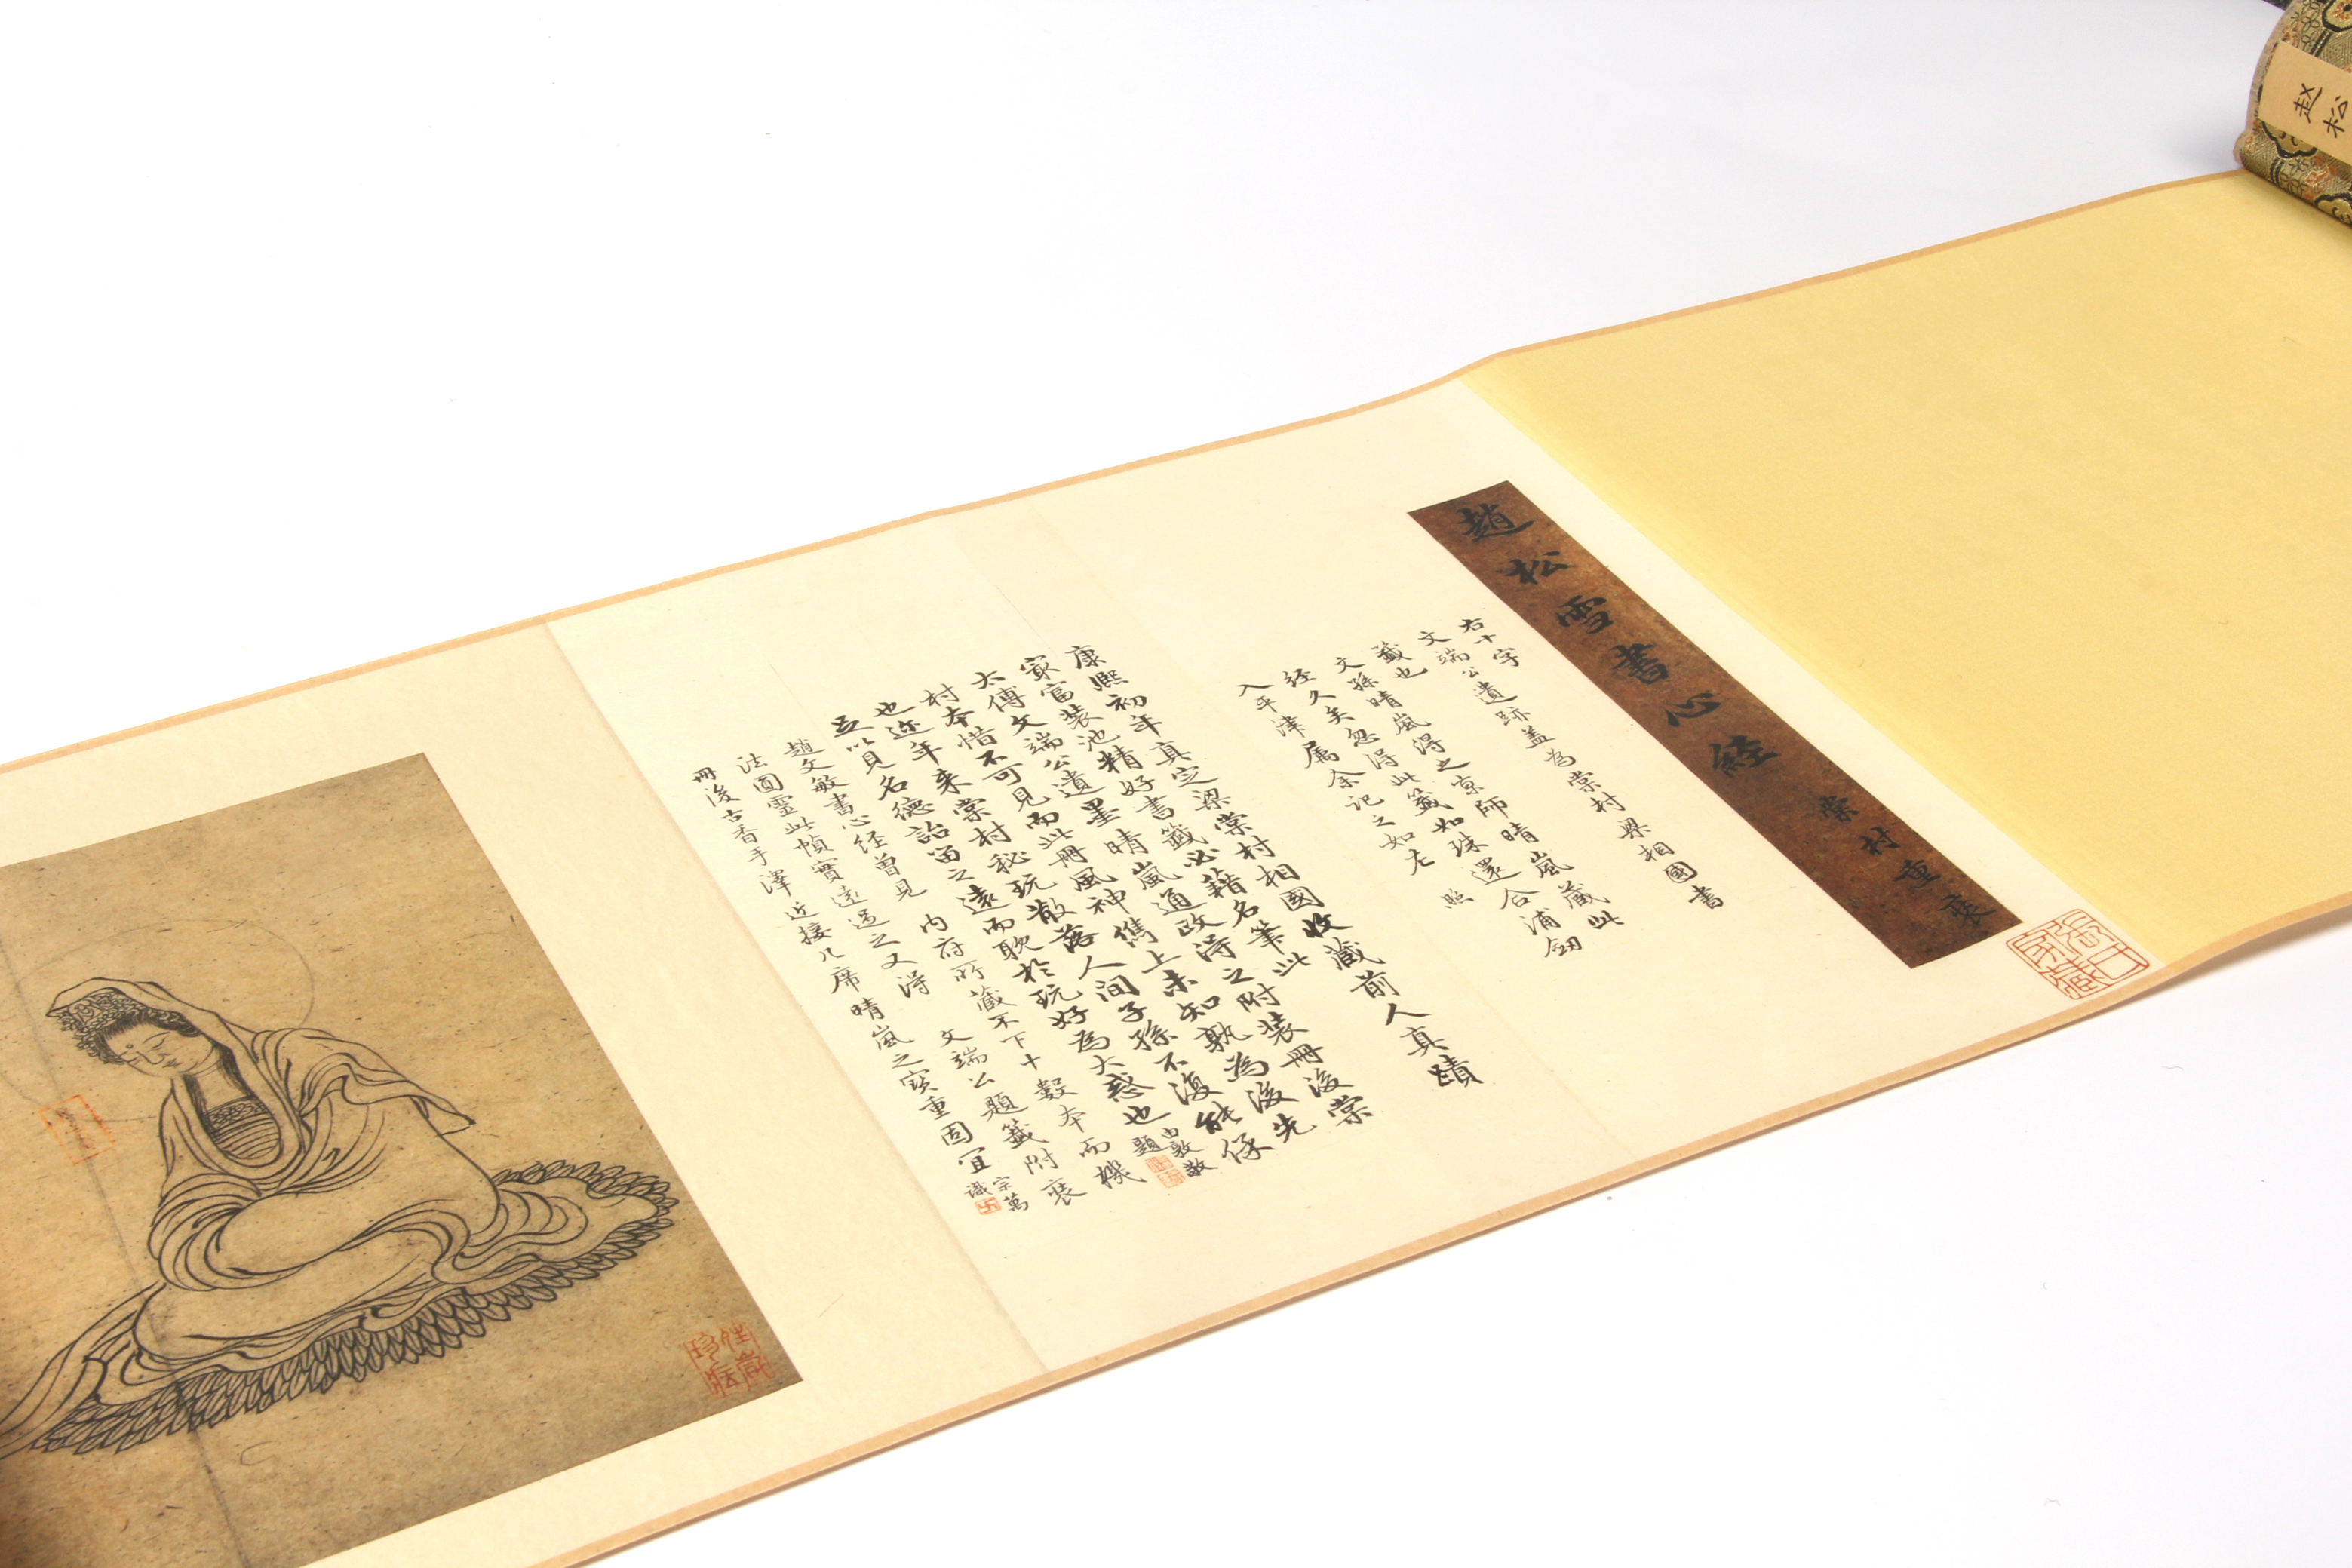 赵松
趙松雪書心經 棠村重裝
右十字
文端公遺跡盖為棠村梁相國書
籤也
文孫晴嵐得之京師晴嵐藏此
经久矣忽得此籤如珠還合浦劒
入平津属余記之如左 照
康熙初年真定梁棠村相國收藏前人真蹟
家富装池精好書籤必藉名筆此
太傅文端公遺墨晴嵐通政得之附装冊後棠
村本惜不可見而此冊風神儁上未知孰為後先
也近年来棠村秘玩散落人间子孫不復能保
足以見名德詒留之遠而耽於玩好為大惑也 由敦敬題
趙文敏書心经曾見 内府所藏不下十數本而機
法圓靈此幀實遠過之又得 文端公題籤附裝
冊後古香手澤近接几席晴嵐之宝重固宜 宗萬識